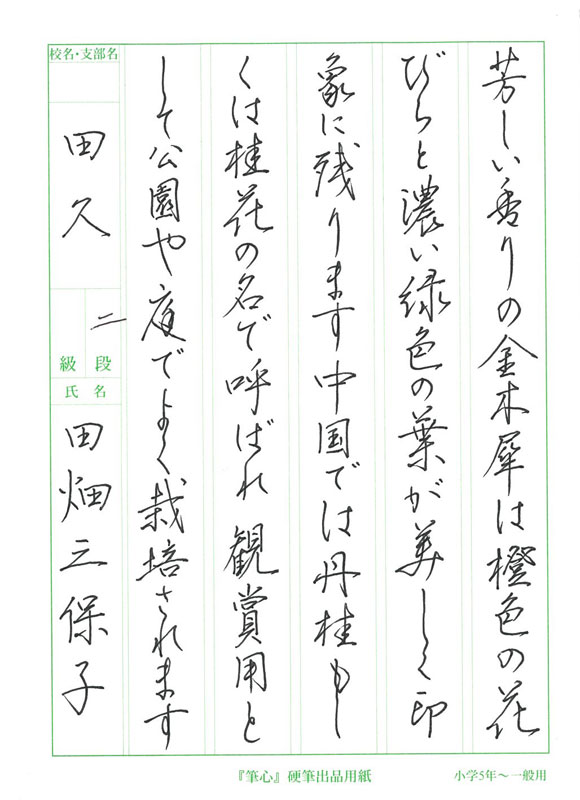 芳しい香りの金木犀は橙色の花
びらと濃い緑色の葉が美しく印
象に残ります中国では丹桂もし
くは桂花の名で呼ばれ観賞用と
して公園や庭でよく栽培されます
校名・支部名
田久
二
段
級
氏名
田畑三保子
『筆心』硬筆出品用紙
小学5年～一般用